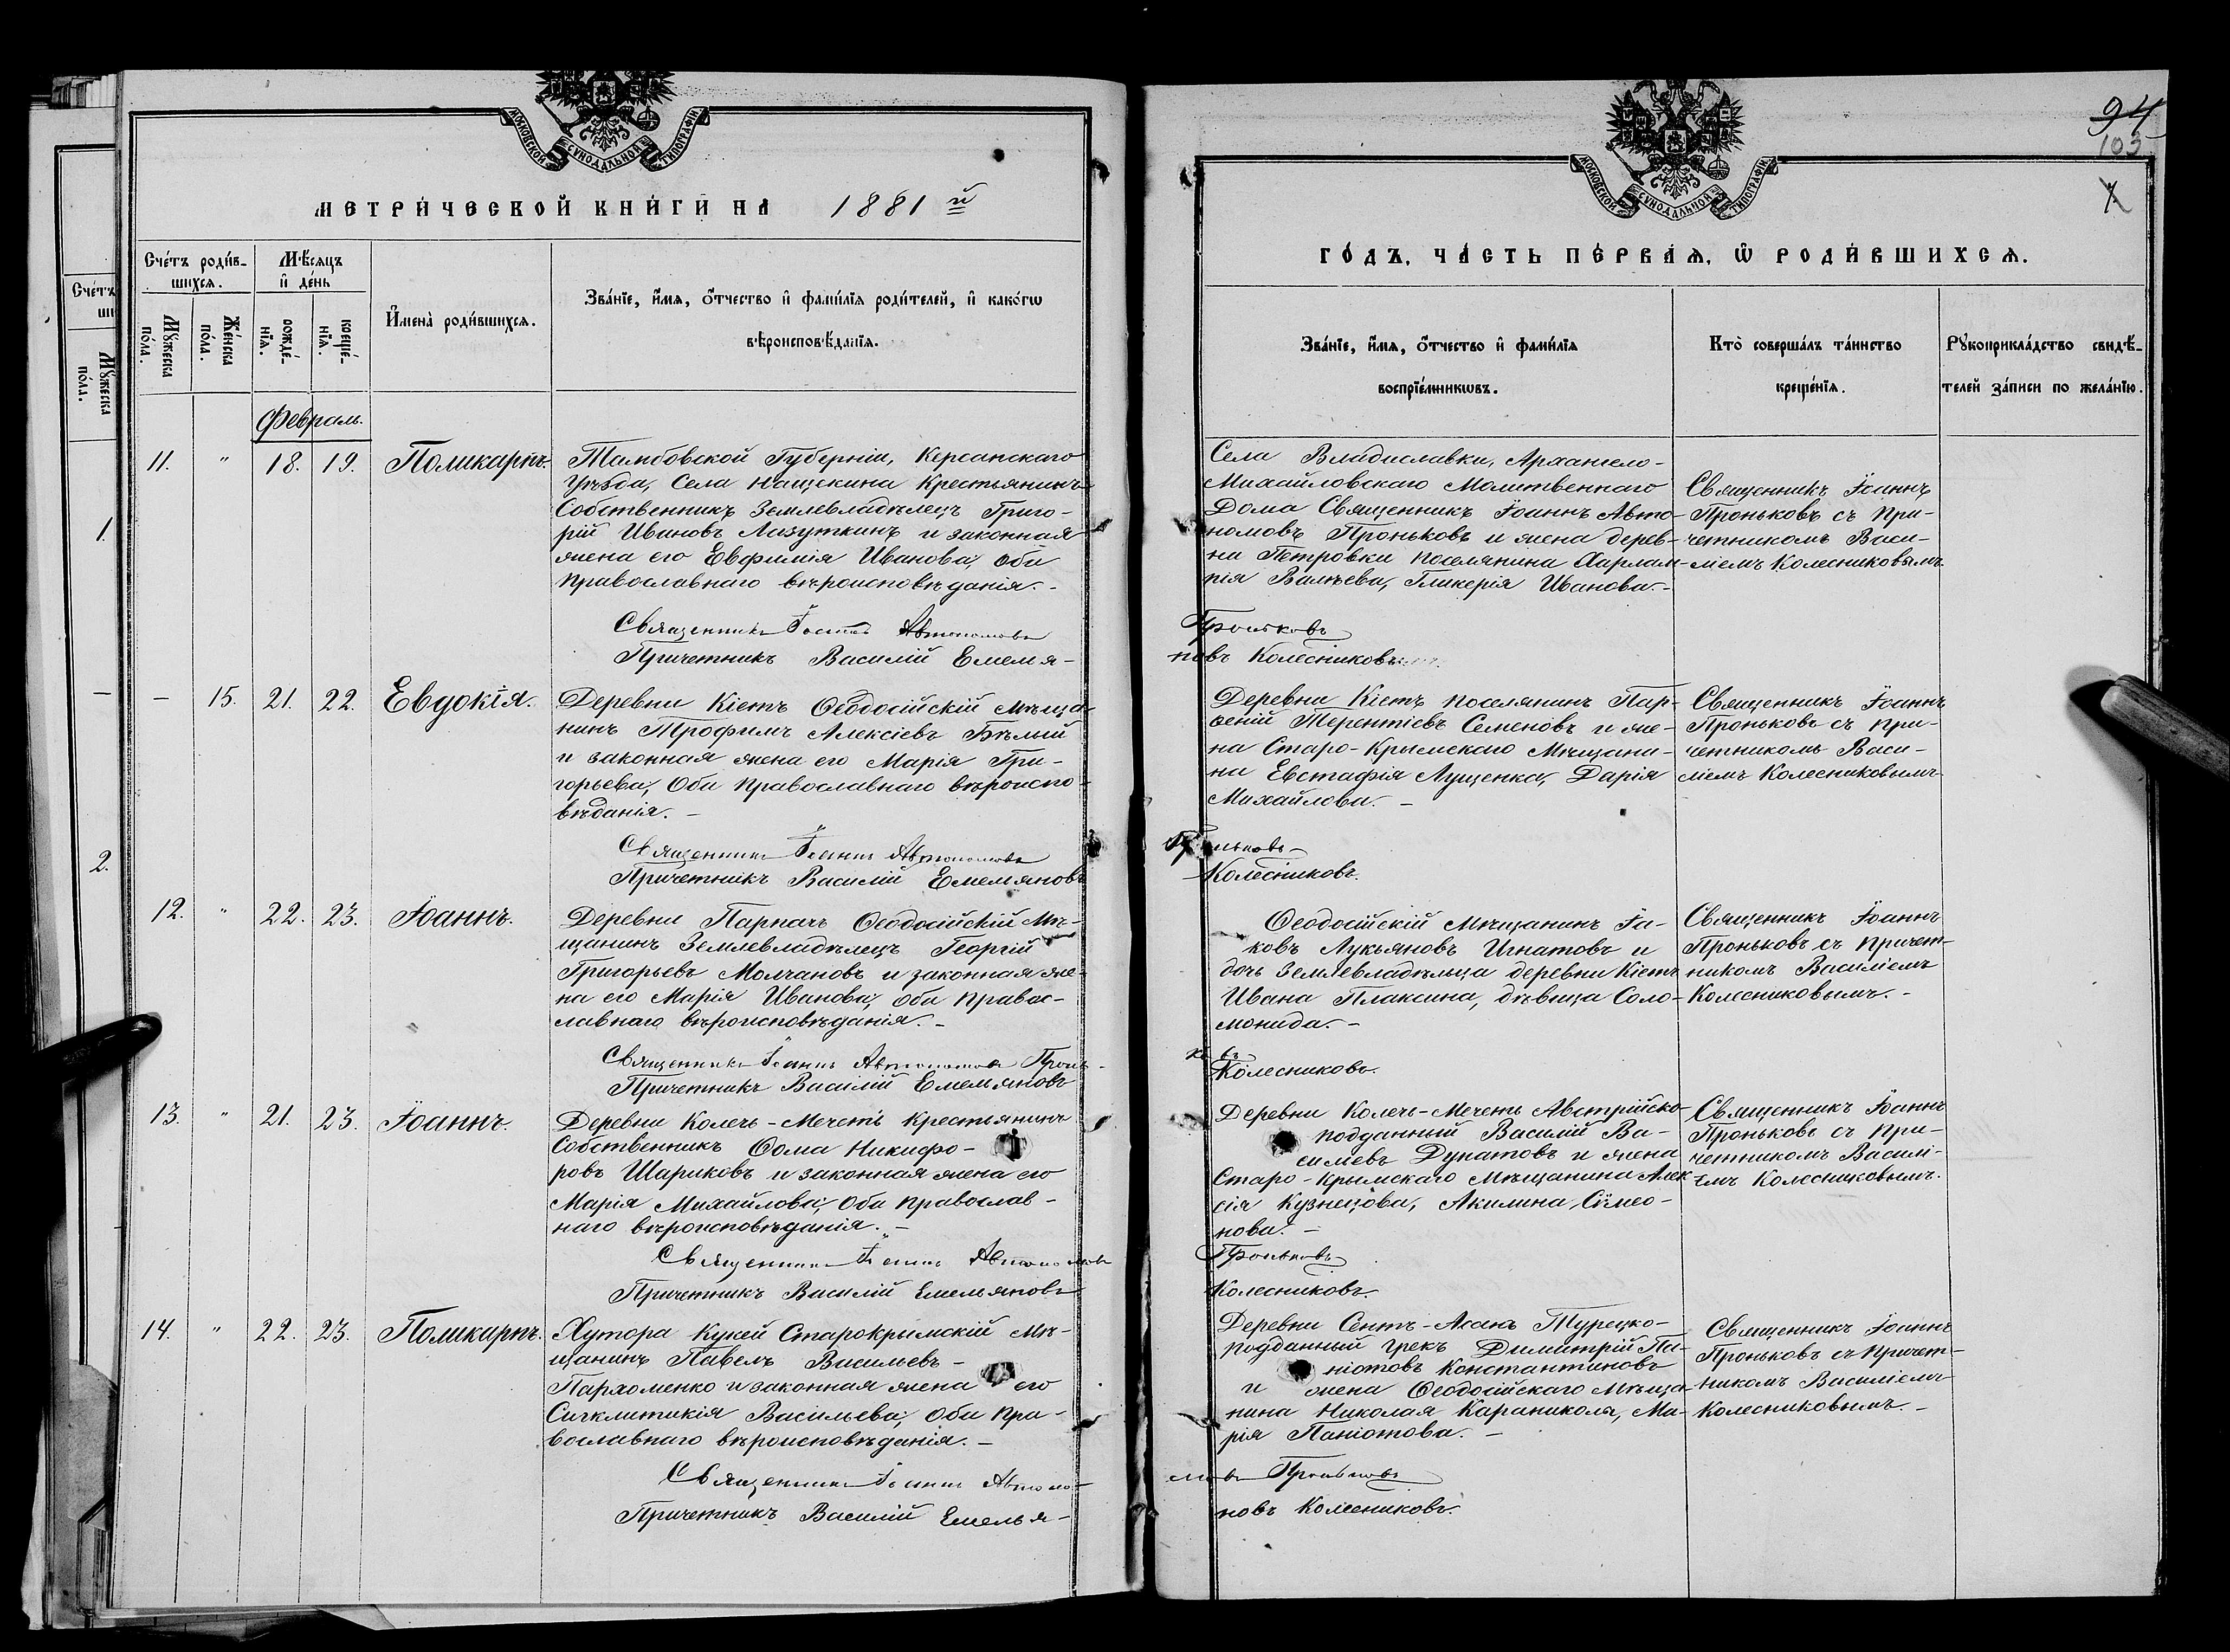 МОСКОВСКОЙ СУНОДАЛЬНОЙ ТИПОГРАФІИ
МЕТРИЧЕСКОЙ КНИГИ НА 1881 й
Счетъ родив-
шихся.
Мужеска пола.
Женска пола.
Мѣсяцъ
и день
рожде-
нія.
креще-
нія.
Имена родившихся.
Званіе, имя, отчество и фамилія родителей, и какогѡ
вѣроисповѣданія.
Февраль.
11. " 18. 19. Поликарпъ.
Тамбовской Губерніи, Керсанскаго
Уѣзда, Села Нащекина Крестьянинъ
Собственникъ Землевладѣлецъ Григо-
рій Ивановъ Лазуткинъ и законная
жена его Евфимія Иванова, оба
православнаго вѣроисповѣданія. -
Священникъ Іоаннъ Автономовъ
Причетникъ Василій Емелья-
— 15. 21. 22. Евдокія.
Деревни Кіетъ Ѳеодосійскій Мѣща-
нинъ Трофимъ Алексіевъ Бѣлый
и законная жена его Марія Гри-
горьева, Оба православнаго вѣроиспо-
вѣданія. -
Священникъ Іоаннъ Автономовъ
Причетникъ Василій Емельяновъ
12. " 22. 23. Іоаннъ.
Деревни Парпачъ Ѳеодосійскій Мѣ-
щанинъ Землевладѣлецъ Георгій
Григорьевъ Молчановъ и законная же-
на его Марія Иванова, оба правос-
лавнаго вѣроисповѣданія. -
Священникъ Іоаннъ Автономовъ Пронь-
Причетникъ Василій Емельяновъ
13. " 21. 23. Іоаннъ.
Деревни Колечь-Мечеть Крестьянинъ
Собственникъ Ѳома Никифо-
ровъ Шариковъ и законная жена его
Марія Михайлова, Оба православ-
наго вѣроисповѣданія. -
Священникъ Іоаннъ Автономовъ
Причетникъ Василій Емельяновъ
14. " 22. 23. Поликарпъ.
Хутора Кукей Старокрымскій Мѣ-
щанинъ Павелъ Васильевъ -
Пархоменко и законная жена его
Сигклитикія Васильева, Оба пра-
вославнаго вѣроисповѣданія. -
Священникъ Іоаннъ Автоно-
Причетникъ Василій Емелья-
Счетъ
Мужеска пола.
1.
—
2.
94
103
МОСКОВСКОЙ СУНОДАЛЬНОЙ ТИПОГРАФІИ
ГОДЪ, ЧАСТЬ ПЕРВАЯ, Ѡ РОДИВШИХСЯ.
Званіе, имя, отчество и фамилія
воспріемникѡвъ.
Кто совершалъ таинство
крещенія.
Рукоприкладство свидѣ-
телей записи по желанію.
Села Владиславки, Архангело-
Михайловскаго Молитвеннаго
Дома Священникъ Іоаннъ Авто-
номовъ Проньковъ и жена дерев-
ни Петровки поселянина Харлам-
пія Валѣева, Гликерія Иванова. -
Священникъ Іоаннъ
Проньковъ съ При-
четникомъ Васи-
ліемъ Колесниковымъ.
Проньковъ
новъ Колесниковъ
Деревни Кіетъ поселянинъ Пар-
ѳеній Терентіевъ Семеновъ и же-
на Старо-Крымскаго Мѣщани-
на Евстафія Лущенка, Дарія
Михайлова. -
Священникъ Іоаннъ
Проньковъ съ При-
четникомъ Васи-
ліемъ Колесниковымъ
Проньковъ
Колесниковъ.
Ѳеодосійскій Мѣщанинъ Іа-
ковъ Лукьяновъ Игнатовъ и
дочь Землевладѣльца деревни Кіетъ
Ивана Плаксина, дѣвица Соло-
монида. -
Священникъ Іоаннъ
Проньковъ съ Причет-
никомъ Василіемъ
Колесниковымъ. -
ковъ
Колесниковъ.
Деревни Колечь-Мечеть Австрійско-
подданный Василій Ва-
сильевъ Дупатовъ и жена
Старо-Крымскаго Мѣщанина Алек-
сія Кузнецова, Акилина Сімео-
нова. -
Священникъ Іоаннъ
Проньковъ съ При-
четникомъ Василі-
емъ Колесниковымъ.
Проньковъ
Колесниковъ.
Деревни Сеитъ-Асанъ Турецко-
подданный Грекъ Димитрій Па-
ніотовъ Константиновъ
и жена Ѳеодосійскаго Мѣща-
нина Николая Караниколя, Ма-
рія Паніотова. -
Священникъ Іоаннъ
Проньковъ съ Причет-
никомъ Василіемъ
Колесниковымъ. -
мовъ Проньковъ
новъ Колесниковъ.